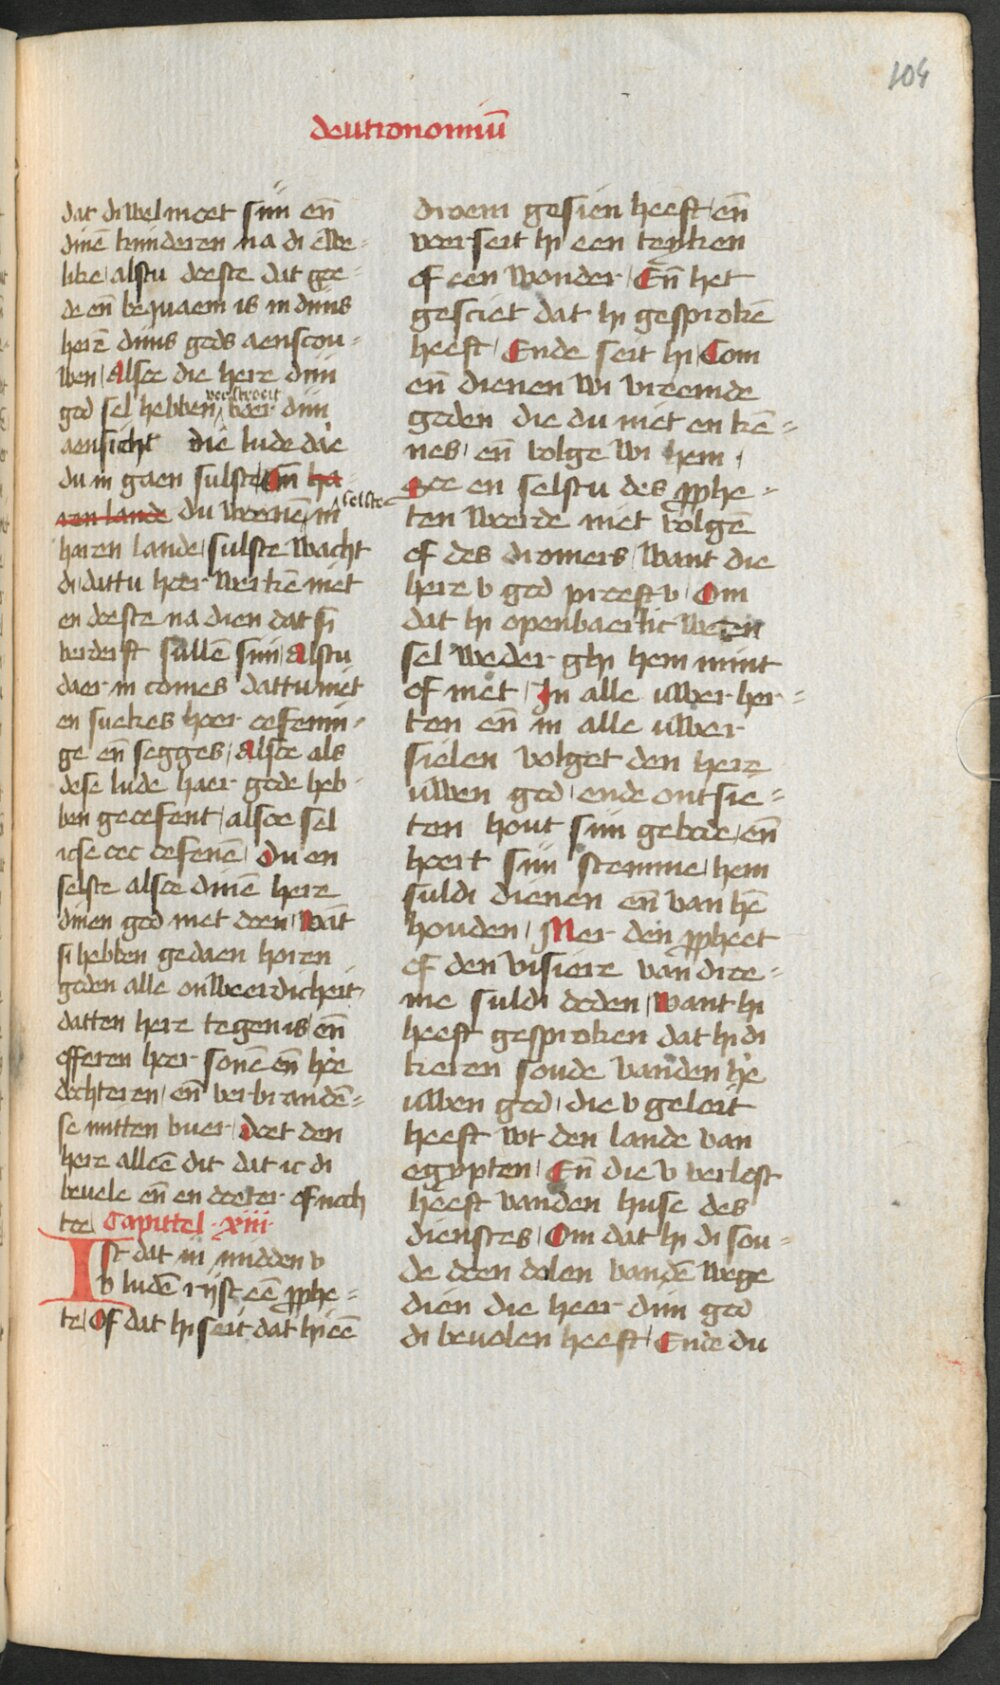 104
deutronomiū
dat di wel moet sijn en̄
dinē kinderen na di ewe=
like / alstu doeste dat goe=
de en̄ bequaem is in dijns
herē dijns gods aenscou=
wen / Alsoe die here dijn
god sel hebben verstroeit voer dijn
aensicht die lude daᵉ
du in gaen sulste / En̄ ha
ren lande du woenē in selste
haren lande / sulste wacht
di / dattu hoer werkē niet
en doeste na dien dat si
verderft sullē sijn / Alstu
daer in comes dattu niet
en suekes hoer oefenin=
ge en̄ segges / Alsoe als
dese lude haer gode heb=
ben geoefent / alsoe sel
icse oec oefenē / Du en
selste alsoe dinē here
dinen god niet doen / Wāt
si hebben gedaen horen
goden alle onweerdicheit /
datten here tegen is / en̄
offeren hoer sonē en̄ hoᵉ
dochteren / en̄ verbrandē=
se mitten vuer / Doet den
here alleē dit dat ic di
bevele en̄ en doeter of noch
toe / Capittel · xiij ·
Ist dat in midden v
v ludē rijst eē prophe=
te / Of dat hi seit dat hi eē
droem gesien heeft / en̄
voerseit hi een teyken
of een wonder / En̄ het
gesciet dat hi gesprokē
heeft / Ende seit hi / Com
en̄ dienen wi vreemde
goden die du niet en kē=
nes / en̄ volge wi hem /
Soe en selstu des prophe=
ten woerde niet volgē
of des dromers / Want die
here v god proeft v / Om
dat hi openbaerlic weten
sel weder ghi hem mint
of niet / In alle uwer her=
ten en̄ in alle uwer
sielen volget den here
uwen god / ende ontsie=
ten hout sijn gebode / en̄
hoert sijn stemme / hem
suldi dienen en̄ van hē
houden / Mer den propheet
of den visiere van droe=
me suldi doden / Want hi
heeft gesproken dat hi di
keren soude vanden heᵉ
uwen god / die v geleit
heeft wt den lande van
egypten / En̄ die v verlost
heeft vanden huse des
dienstes / Om dat hi di sou=
de doen dolen vandē wege
dien die heer dijn god
di bevolen heeft / Ende du